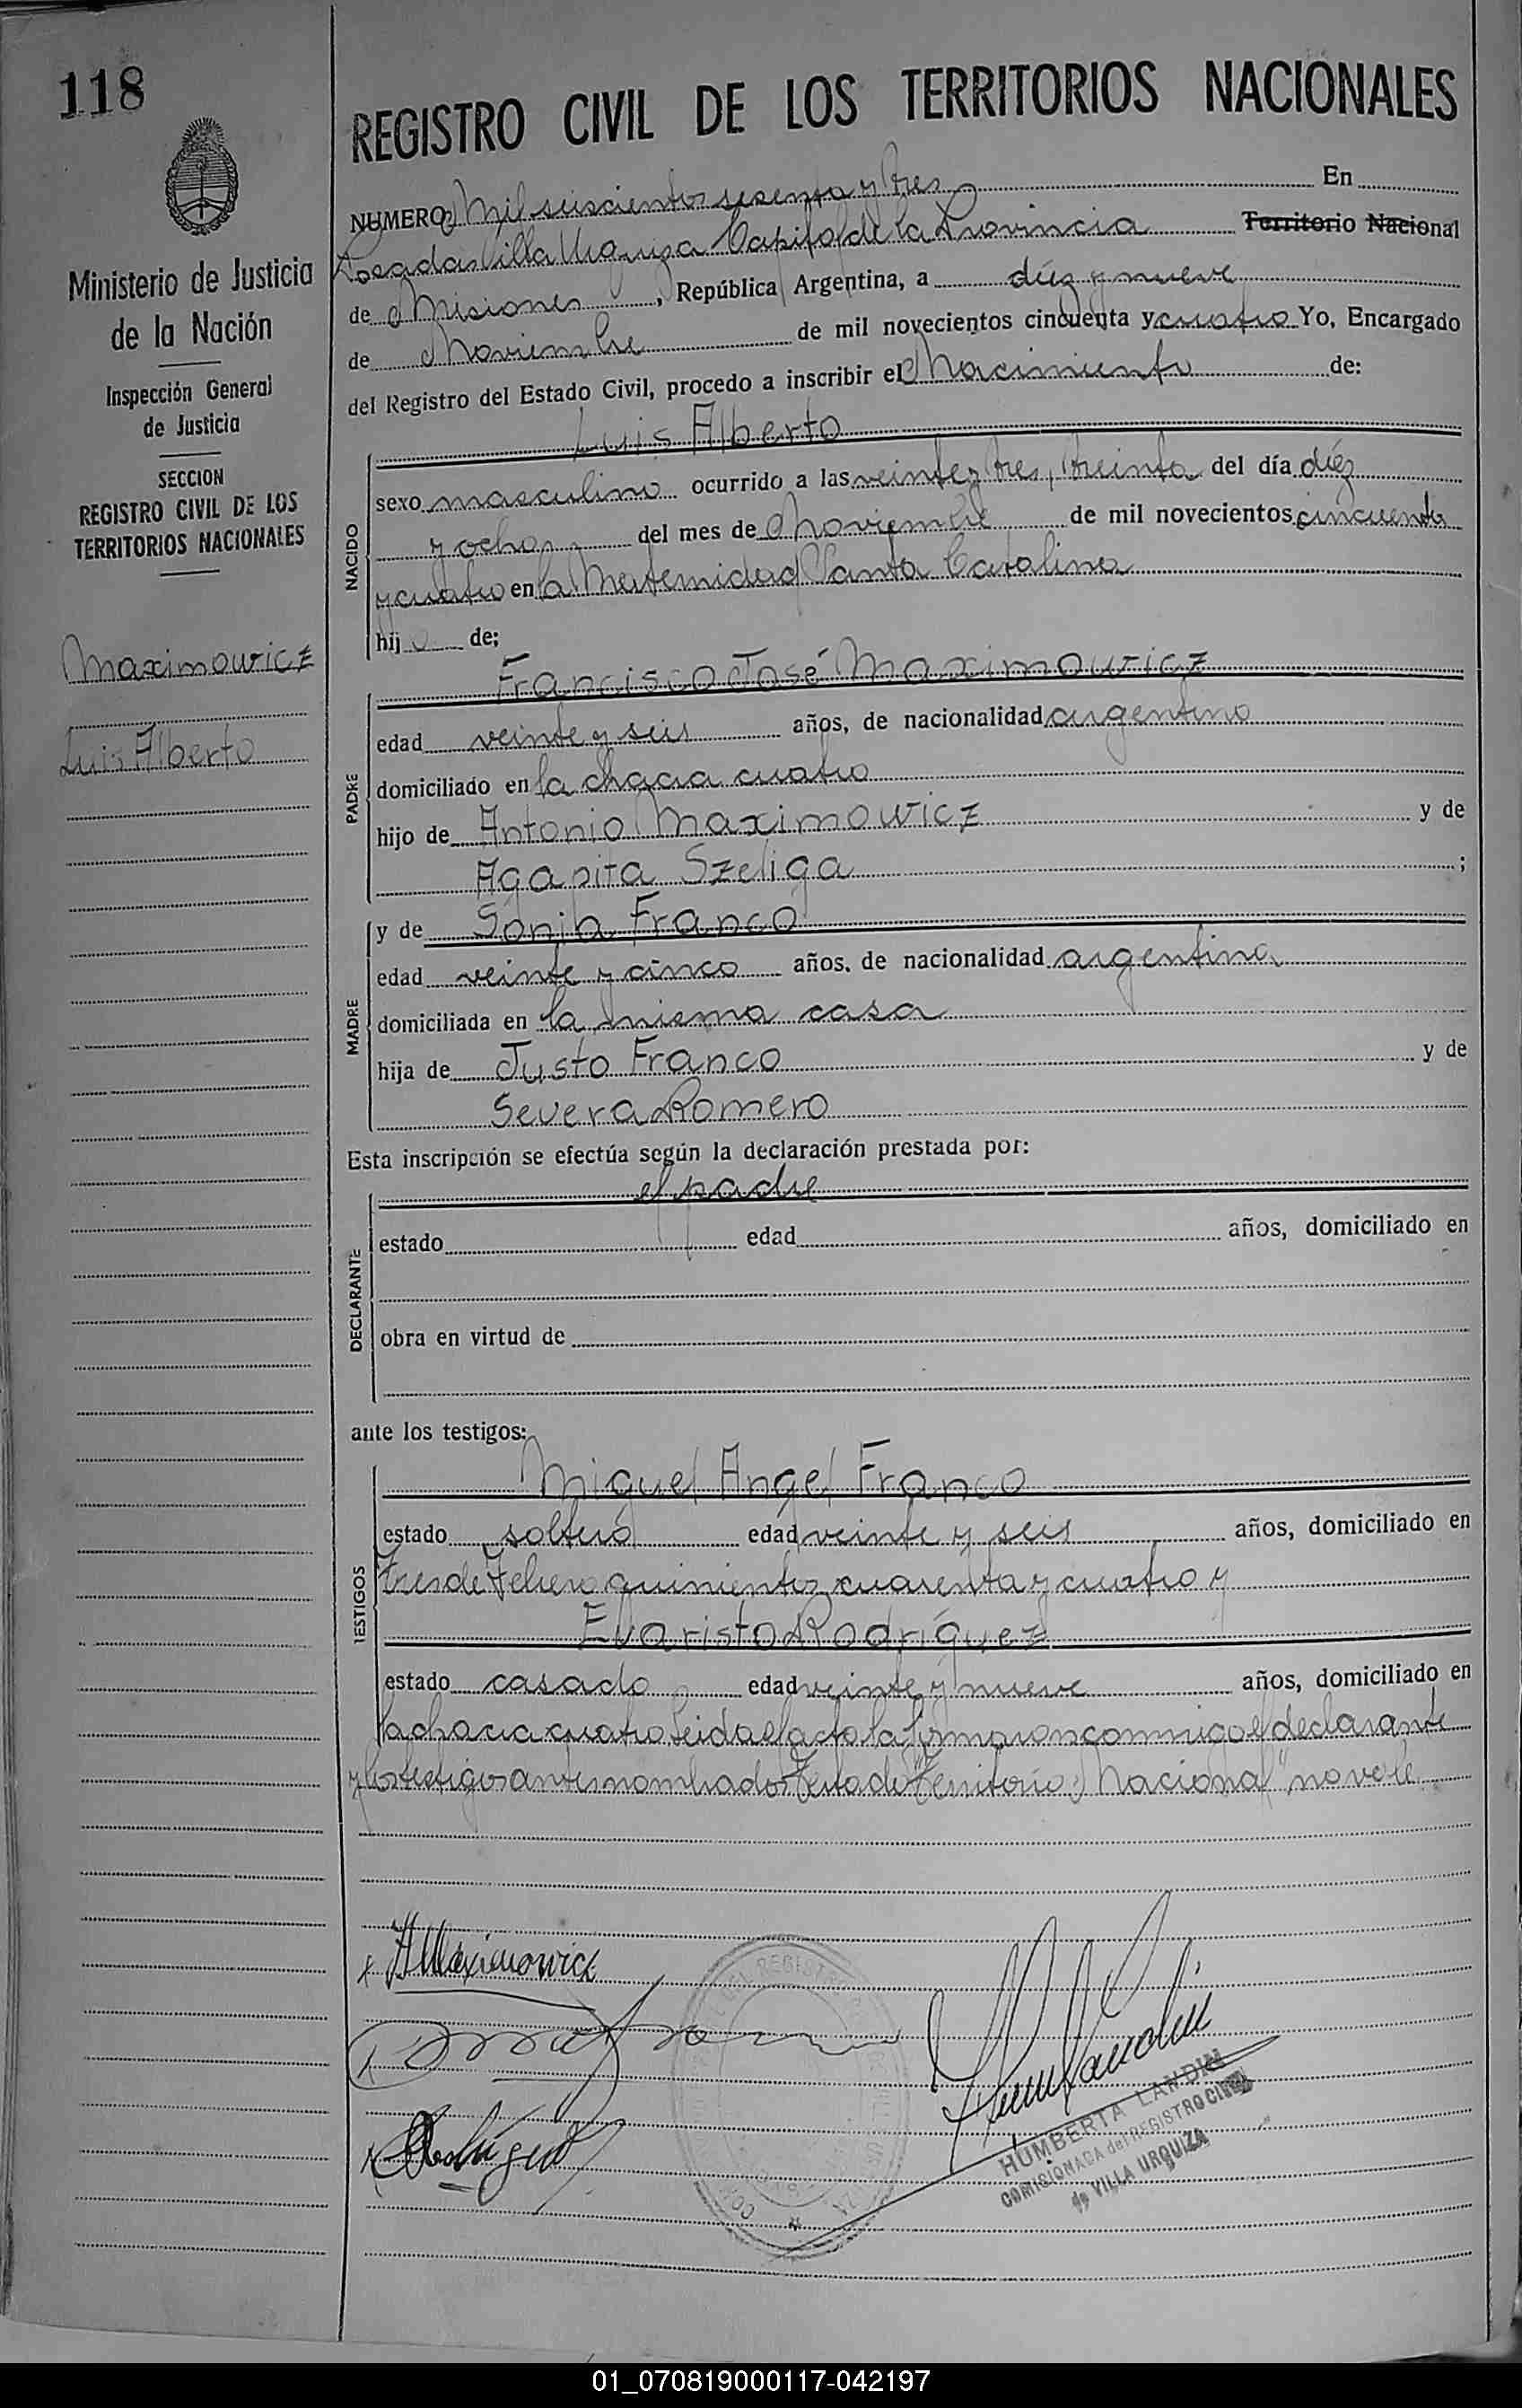 118
Ministerio de Justicia
de la Nación
Inspección General
de Justicia
SECCION
REGISTRO CIVIL DE LOS
TERRITORIOS NACIONALES
Maximowicz
Luis Alberto
REGISTRO CIVIL DE LOS TERRITORIOS NACIONALES
NUMERO Mil seiscientos sesenta y tres En
Posadas Villa Urquiza Capital de la Provincia Territorio Nacional
de Misiones, República Argentina, a diez y nueve
de Noviembre de mil novecientos cincuenta y cuatro Yo, Encargado
del Registro del Estado Civil, procedo a inscribir el Nacimiento de:
Luis Alberto
NACIDO
sexo masculino ocurrido a las veinte y tres, treinta del día diez
y ocho del mes de Noviembre de mil novecientos cincuenta
y cuatro en la Maternidad Santa Catalina
hijo de;
Francisco José Maximowicz
PADRE
edad veinte y seis años, de nacionalidad argentino
domiciliado en la chacra cuatro
hijo de Antonio Maximowicz y de
Agapita Szeliga ;
MADRE
y de Sonia Franco
edad veinte y cinco años. de nacionalidad argentina
domiciliada en la misma casa
hija de Justo Franco y de
Severa Romero
Esta inscripción se efectúa según la declaración prestada por:
el padre
DECLARANTE
estado edad años, domiciliado en
obra en virtud de
ante los testigos:
Miguel Angel Franco
TESTIGOS
estado soltero edad veinte y seis años, domiciliado en
Tres de Febrero quinientos cuarenta y cuatro y
Evaristo Rodríguez
estado casado edad veinte y nueve años, domiciliado en
la chacra cuatro. Leida el acta la firmaron conmigo el declarante
y los testigos antes nombrados. Testado "Territorio Nacional" no vale
Maximowicz
HUMBERTA LANDIN
COMISIONADA del REGISTRO CIVIL
de VILLA URQUIZA
01_070819000117-042197